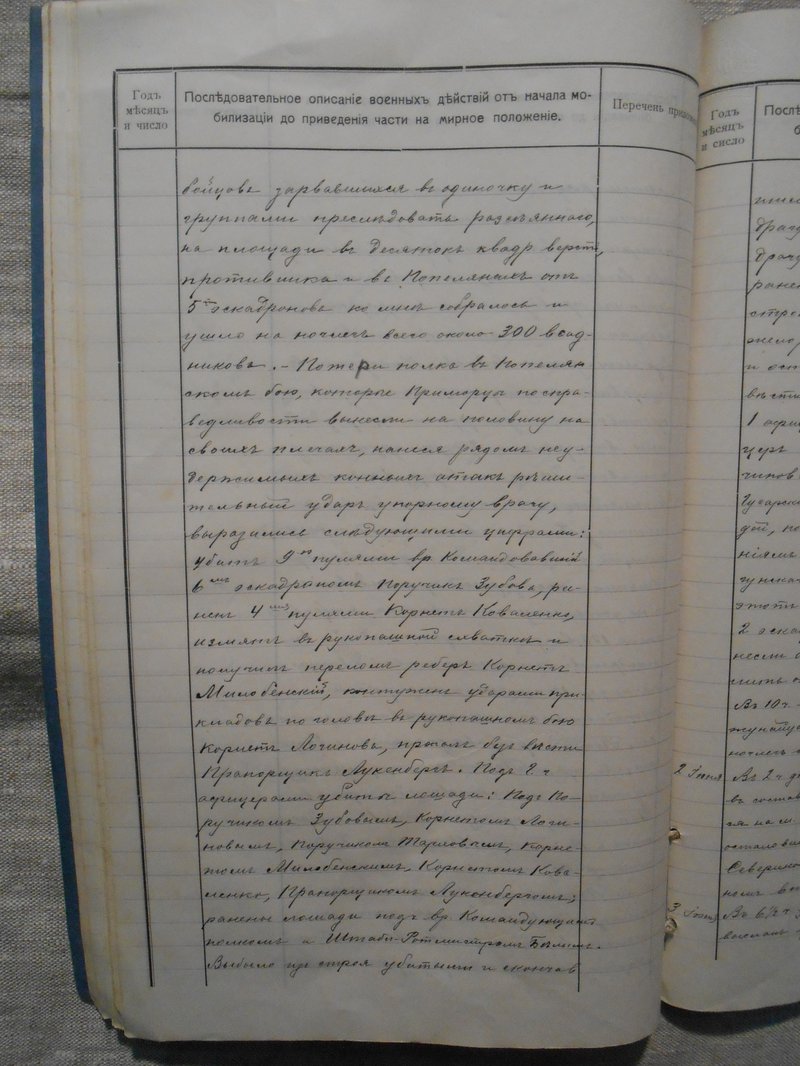 Годъ
мѣсяцъ
и число
Послѣдовательное описаніе военныхъ дѣйствій отъ начала мо-
билизаціи до приведенія части на мирное положеніе.
Перечень прилож
бойцовъ зарвавшихся въ одиночку и
группами преслѣдовать разсѣяннаго,
на площади въ десятокъ квадр верстъ,
противника и въ Попелянахъ отъ
5ти эскадроновъ ко мнѣ собралось и
ушло на ночлегъ всего около 300 всад-
никовъ. – Потери полка въ Попелян
скомъ бою, которые Приморцы по спра-
ведливости вынесли на половину на
своихъ плечахъ, нанеся рядомъ неу-
держимыхъ конныхъ атакъ рѣши-
тельный ударъ упорному врагу,
выразились слѣдующими цифрами:
убитъ 9ю пулями вр. Командовавшій
6мъ эскадрономъ Поручикъ Зубовъ, ра-
ненъ 4мя пулями Корнетъ Коваленко,
измятъ въ рукопашной схваткѣ и
получилъ переломъ реберъ Корнетъ
Милобенскій, контуженъ ударами при-
кладовъ по головѣ въ рукопашномъ бою
Корнетъ Логиновъ, пропалъ безъ вѣсти
Прапорщикъ Лукенбергъ. Подъ 8 ч
офицерами убиты лошади: Подъ По-
ручикомъ Зубовымъ, Корнетомъ Логи-
новымъ, Поручикомъ Корне-
томъ Милобенскимъ, Корнетомъ Кова-
ленко, Прапорщикомъ Лукенбергомъ;
ранены лошади подъ вр. Командующимъ
полкомъ и Штабъ-Ротмистромъ
Выбыло изъ строя убитыми и скончав
Годъ
мѣсяцъ
и сисло
Послѣ
б
ранен
и ост
вѣсти
1 офи
церъ
чиковъ
Гусарск
дой, по
ніямъ
этотъ
2 эска
несли
Въ 10 ч
ночлегъ
2 Іюня
Въ 2 ч д
въ состав
остановив
3 Іюня
Въ 6½ ч